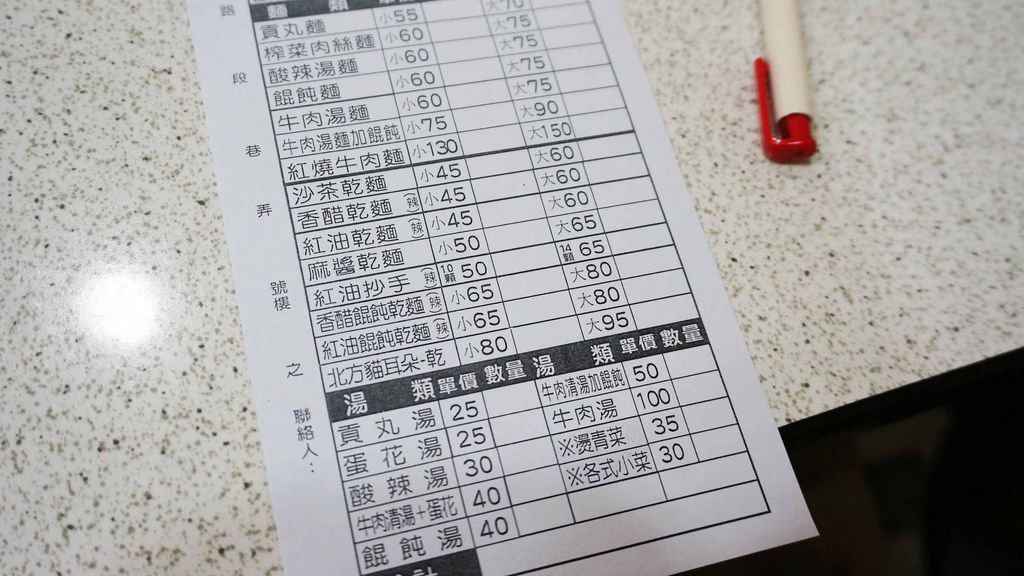 路
段
巷
弄
號樓
之
聯絡人：
麵 類
貢丸麵 小55 大70
榨菜肉絲麵 小60 大75
酸辣湯麵 小60 大75
餛飩麵 小60 大75
牛肉湯麵 小60 大75
牛肉湯麵加餛飩 小75 大90
紅燒牛肉麵 小130 大150
沙茶乾麵 小45 大60
香醋乾麵 辣 小45 大60
紅油乾麵 辣 小45 大60
麻醬乾麵 小50 大65
紅油抄手 辣 10顆 50 14顆 65
香醋餛飩乾麵 辣 小65 大80
紅油餛飩乾麵 辣 小65 大80
北方貓耳朵-乾 小80 大95
湯 類 單價 數量 湯 類 單價 數量
貢丸湯 25 牛肉清湯加餛飩 50
蛋花湯 25 牛肉湯 100
酸辣湯 30 ※燙菁菜 35
牛肉清湯+蛋花 40 ※各式小菜 30
餛飩湯 40